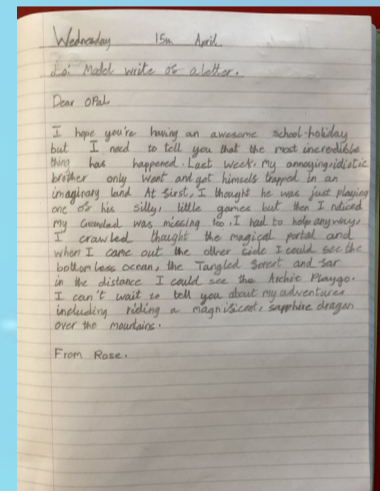 Wednesday 15th April
Lo: Model write of a letter.
Dear Opal
I hope you're having an awesome school holiday
but I need to tell you that the most incredible
thing has happened. Last week, my annoying, idiotic
brother only went and got himself trapped in an
imaginary land. At first, I thought he was just playing
one of his silly, little games but then I noticed
my Grandad was missing too. I had to help anyway,
I crawled thought the magical portal and
when I came out the other side I could see the
bottomless ocean, the Tangled forest and far
in the distance I could see the
I can't wait to tell you about my adventures
including riding a magnificent, sapphire dragon
over the mountains.
From Rose.